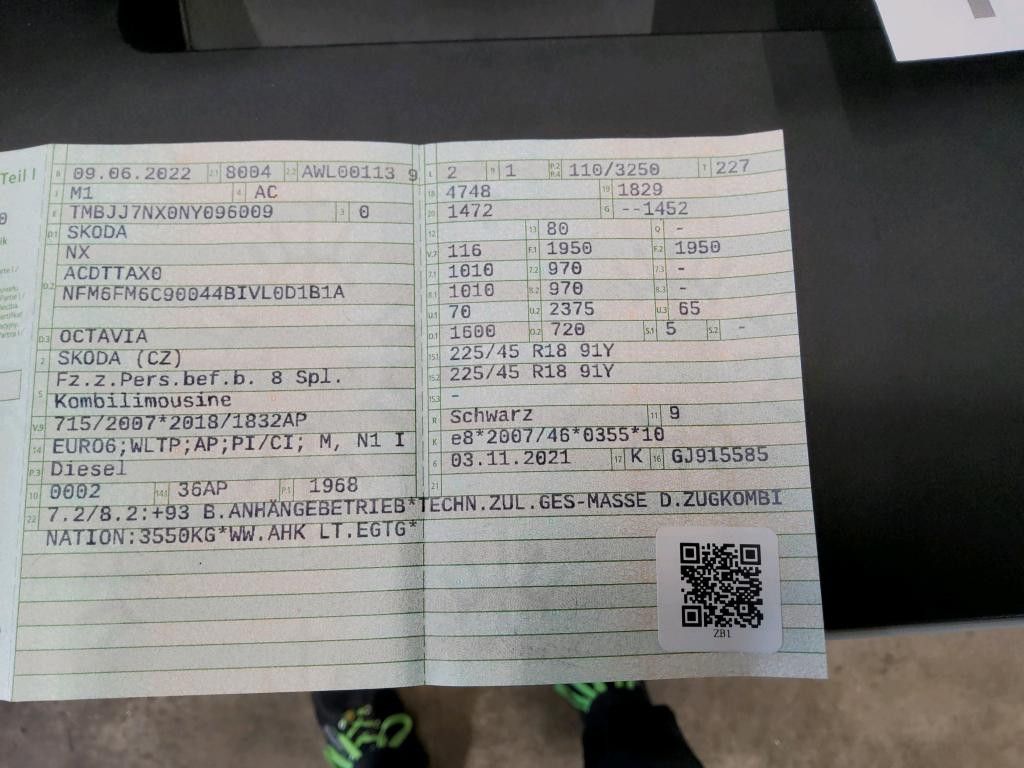 Teil I
B 09.06.2022 2.1 8004 2.2 AWL00113 9
J M1 4 AC
E TMBJJ7NX0NY096009 3 0
D.1 SKODA
NX
D.2 ACDTTAX0
NFM6FM6C90044BIVL0D1B1A
D.3 OCTAVIA
2 SKODA (CZ)
5 Fz.z.Pers.bef.b. 8 Spl.
Kombilimousine
V.9 715/2007*2018/1832AP
14 EURO6;WLTP;AP;PI/CI; M, N1 I
P.3 Diesel
10 0002 14.1 36AP P.1 1968
L 2 9 1 P.2 P.4 110/3250 T 227
18 4748 19 1829
20 1472 G --1452
12 13 80 Q -
V.7 116 F.1 1950 F.2 1950
7.1 1010 7.2 970 7.3 -
8.1 1010 8.2 970 8.3 -
U.1 70 U.2 2375 U.3 65
O.1 1600 O.2 720 S.1 5 S.2 -
15.1 225/45 R18 91Y
15.2 225/45 R18 91Y
15.3 -
R Schwarz 11 9
K e8*2007/46*0355*10
6 03.11.2021 17 K 16 GJ915585
21
22 7.2/8.2:+93 B.ANHÄNGEBETRIEB*TECHN.ZUL.GES-MASSE D.ZUGKOMBI
NATION:3550KG*WW.AHK LT.EGTG*
ZB1